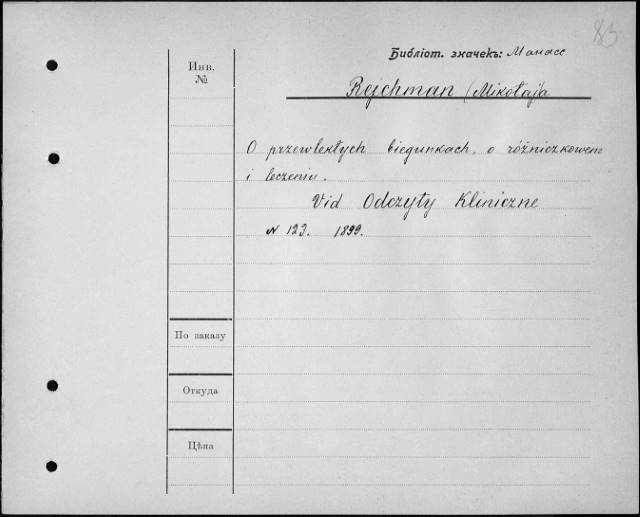 83
Библіот. значекъ: Манасс
Инв.
№
Rejchman (Mikołaja
O przewlekłych biegunkach, o różniczkowem
i leczeniu.
Vid Odczyty Kliniczne
N 123. 1899.
По заказу
Откуда
Цѣна